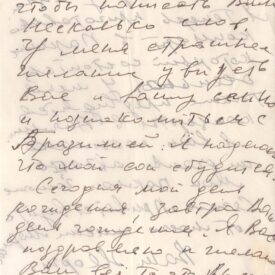 чтобы написать Вам
несколько слов.
У меня страшное
желание увидеть
Вас и Вашу семью
и познакомиться с
Бразилией. Я надеюсь
что мой сон сбудется.
Сегодня мой день
рождения завтра Ваш
день рождения. Я Вас
поздравляю и желаю
Вам